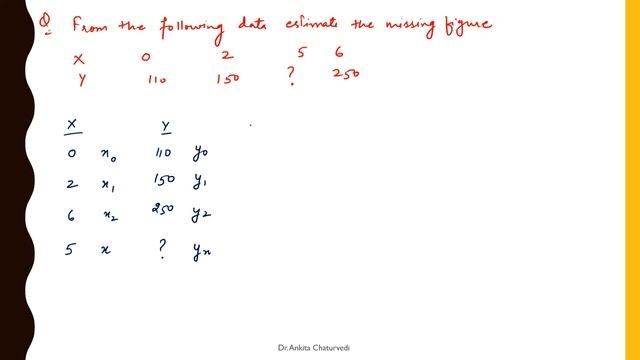 Q: From the following data estimate the missing figure
X 0 2 5 6
Y 110 150 ? 250
X Y
0 x0 110 y0
2 x1 150 y1
6 x2 250 y2
5 x ? yx
Dr.Ankita Chaturvedi